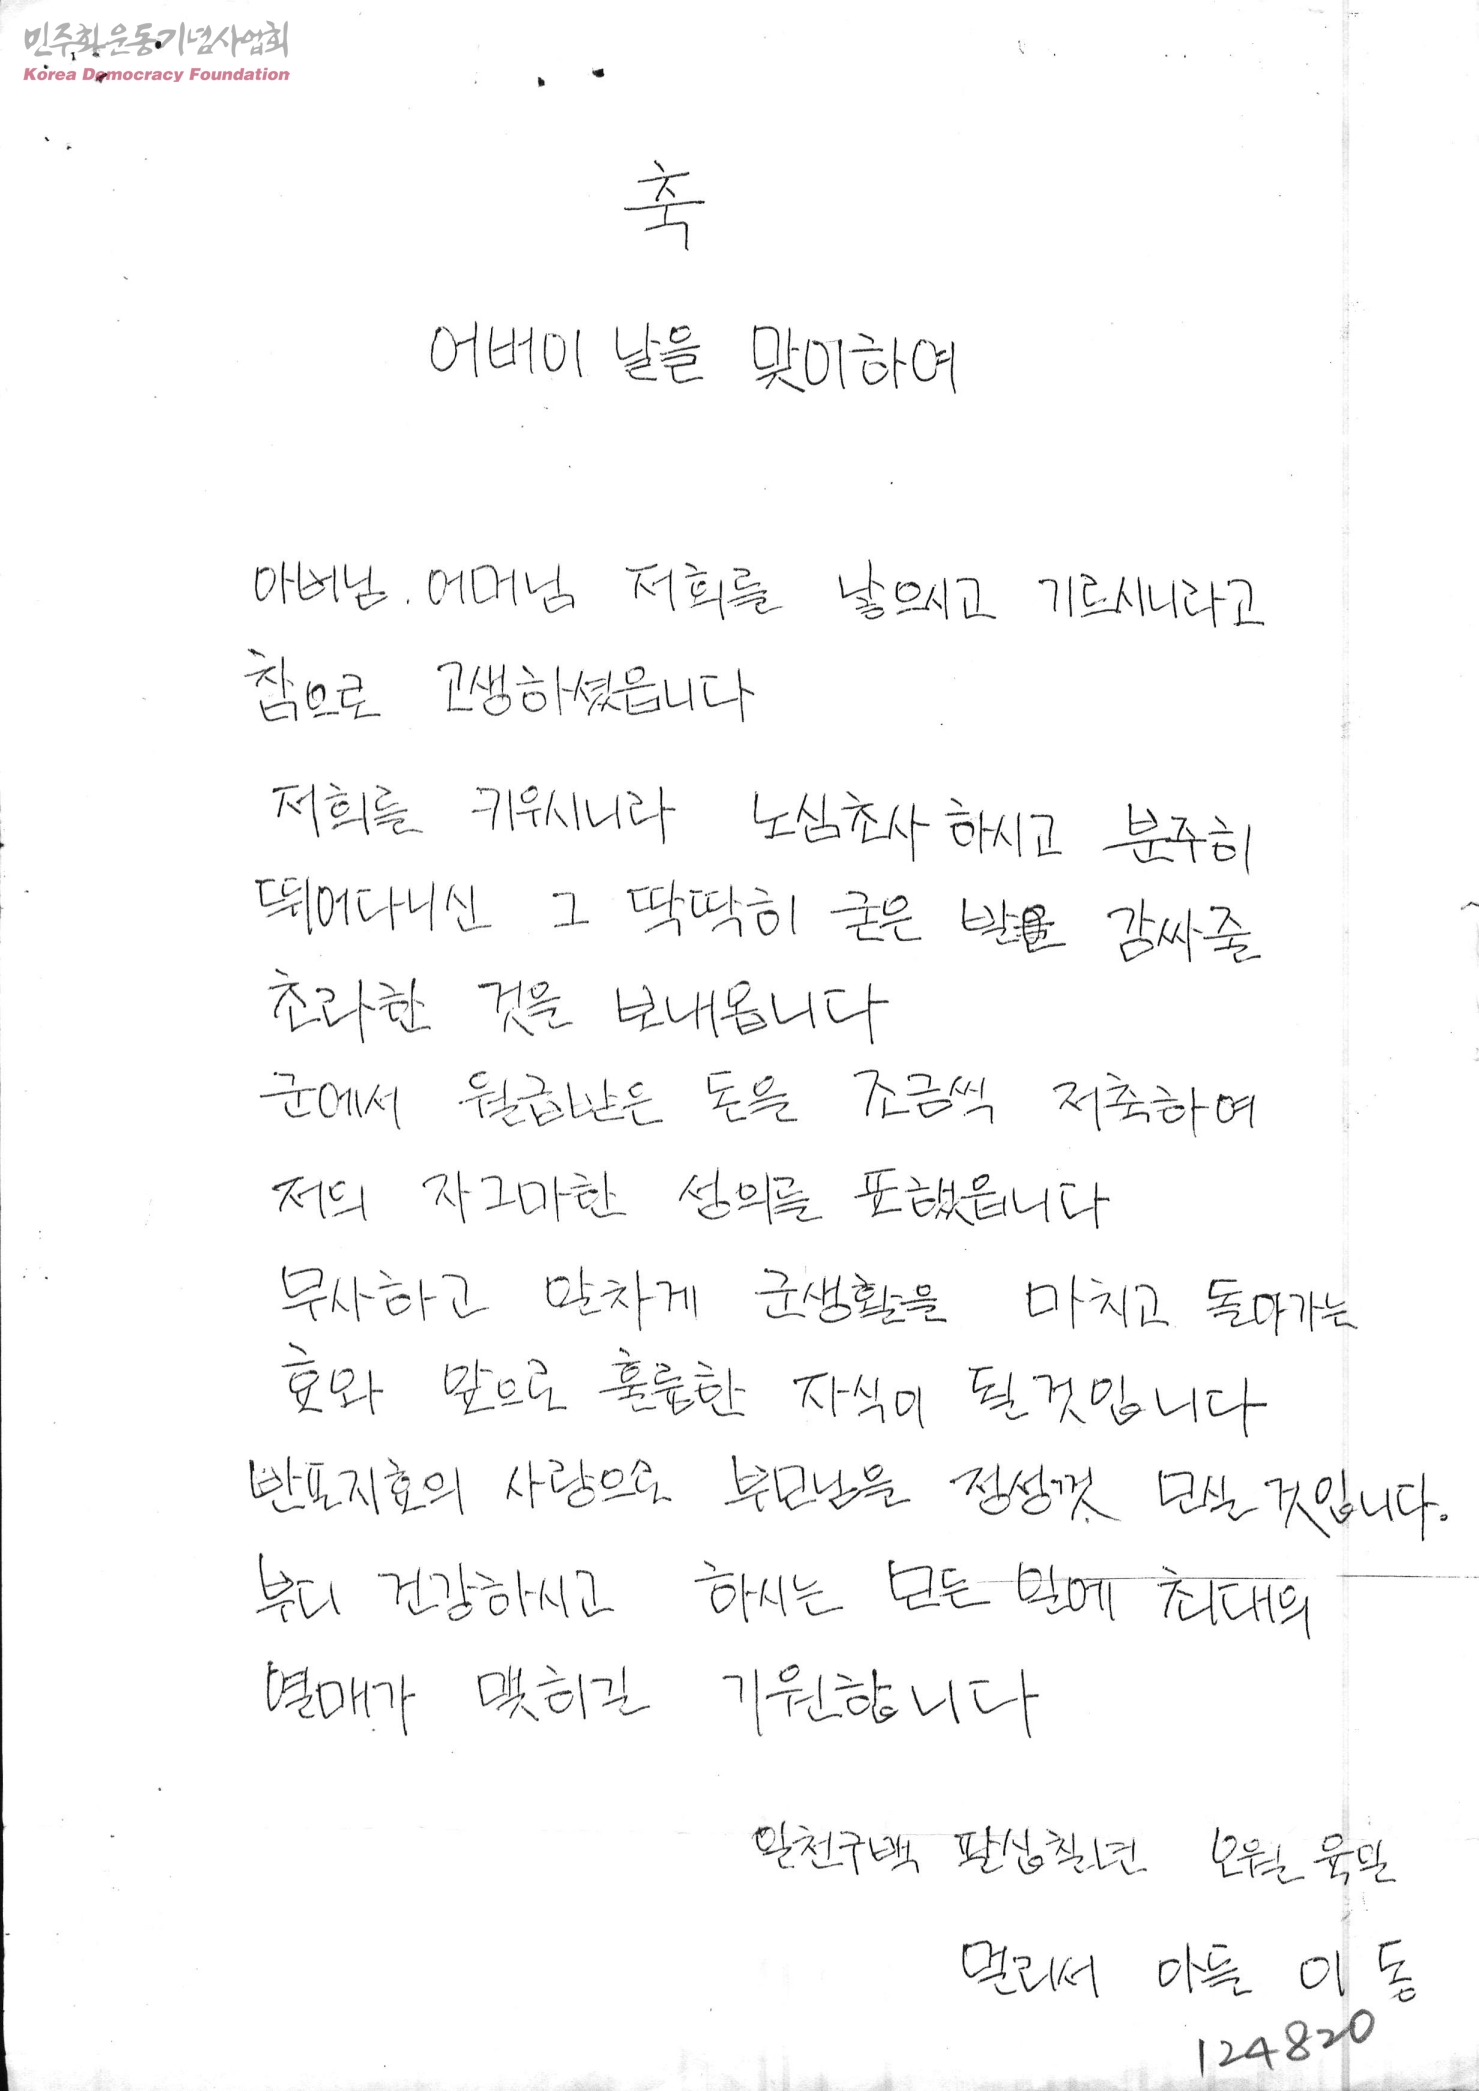 민주화운동기념사업회
Korea Democracy Foundation
축
어버이 날을 맞이하여
아버님. 어머님 저희를 낳으시고 기르시니라고
참으로 고생하셨읍니다
저희를 키우시니라 노심초사 하시고 분주히
뛰어다니신 그 딱딱히 굳은 발을 감싸줄
초라한 것을 보내옵니다
군에서 월급받은 돈을 조금씩 저축하여
저의 자그마한 성의를 표했읍니다
무사하고 알차게 군생활을 마치고 돌아가는
효와 앞으로 훌륭한 자식이 될것입니다
반포지효의 사랑으로 부모님을 정성껏 모실 것입니다.
부디 건강하시고 하시는 모든 일에 최대의
열매가 맺히길 기원합니다
일천구백 팔십칠년 오월 육일
멀리서 아들 이 동
124820